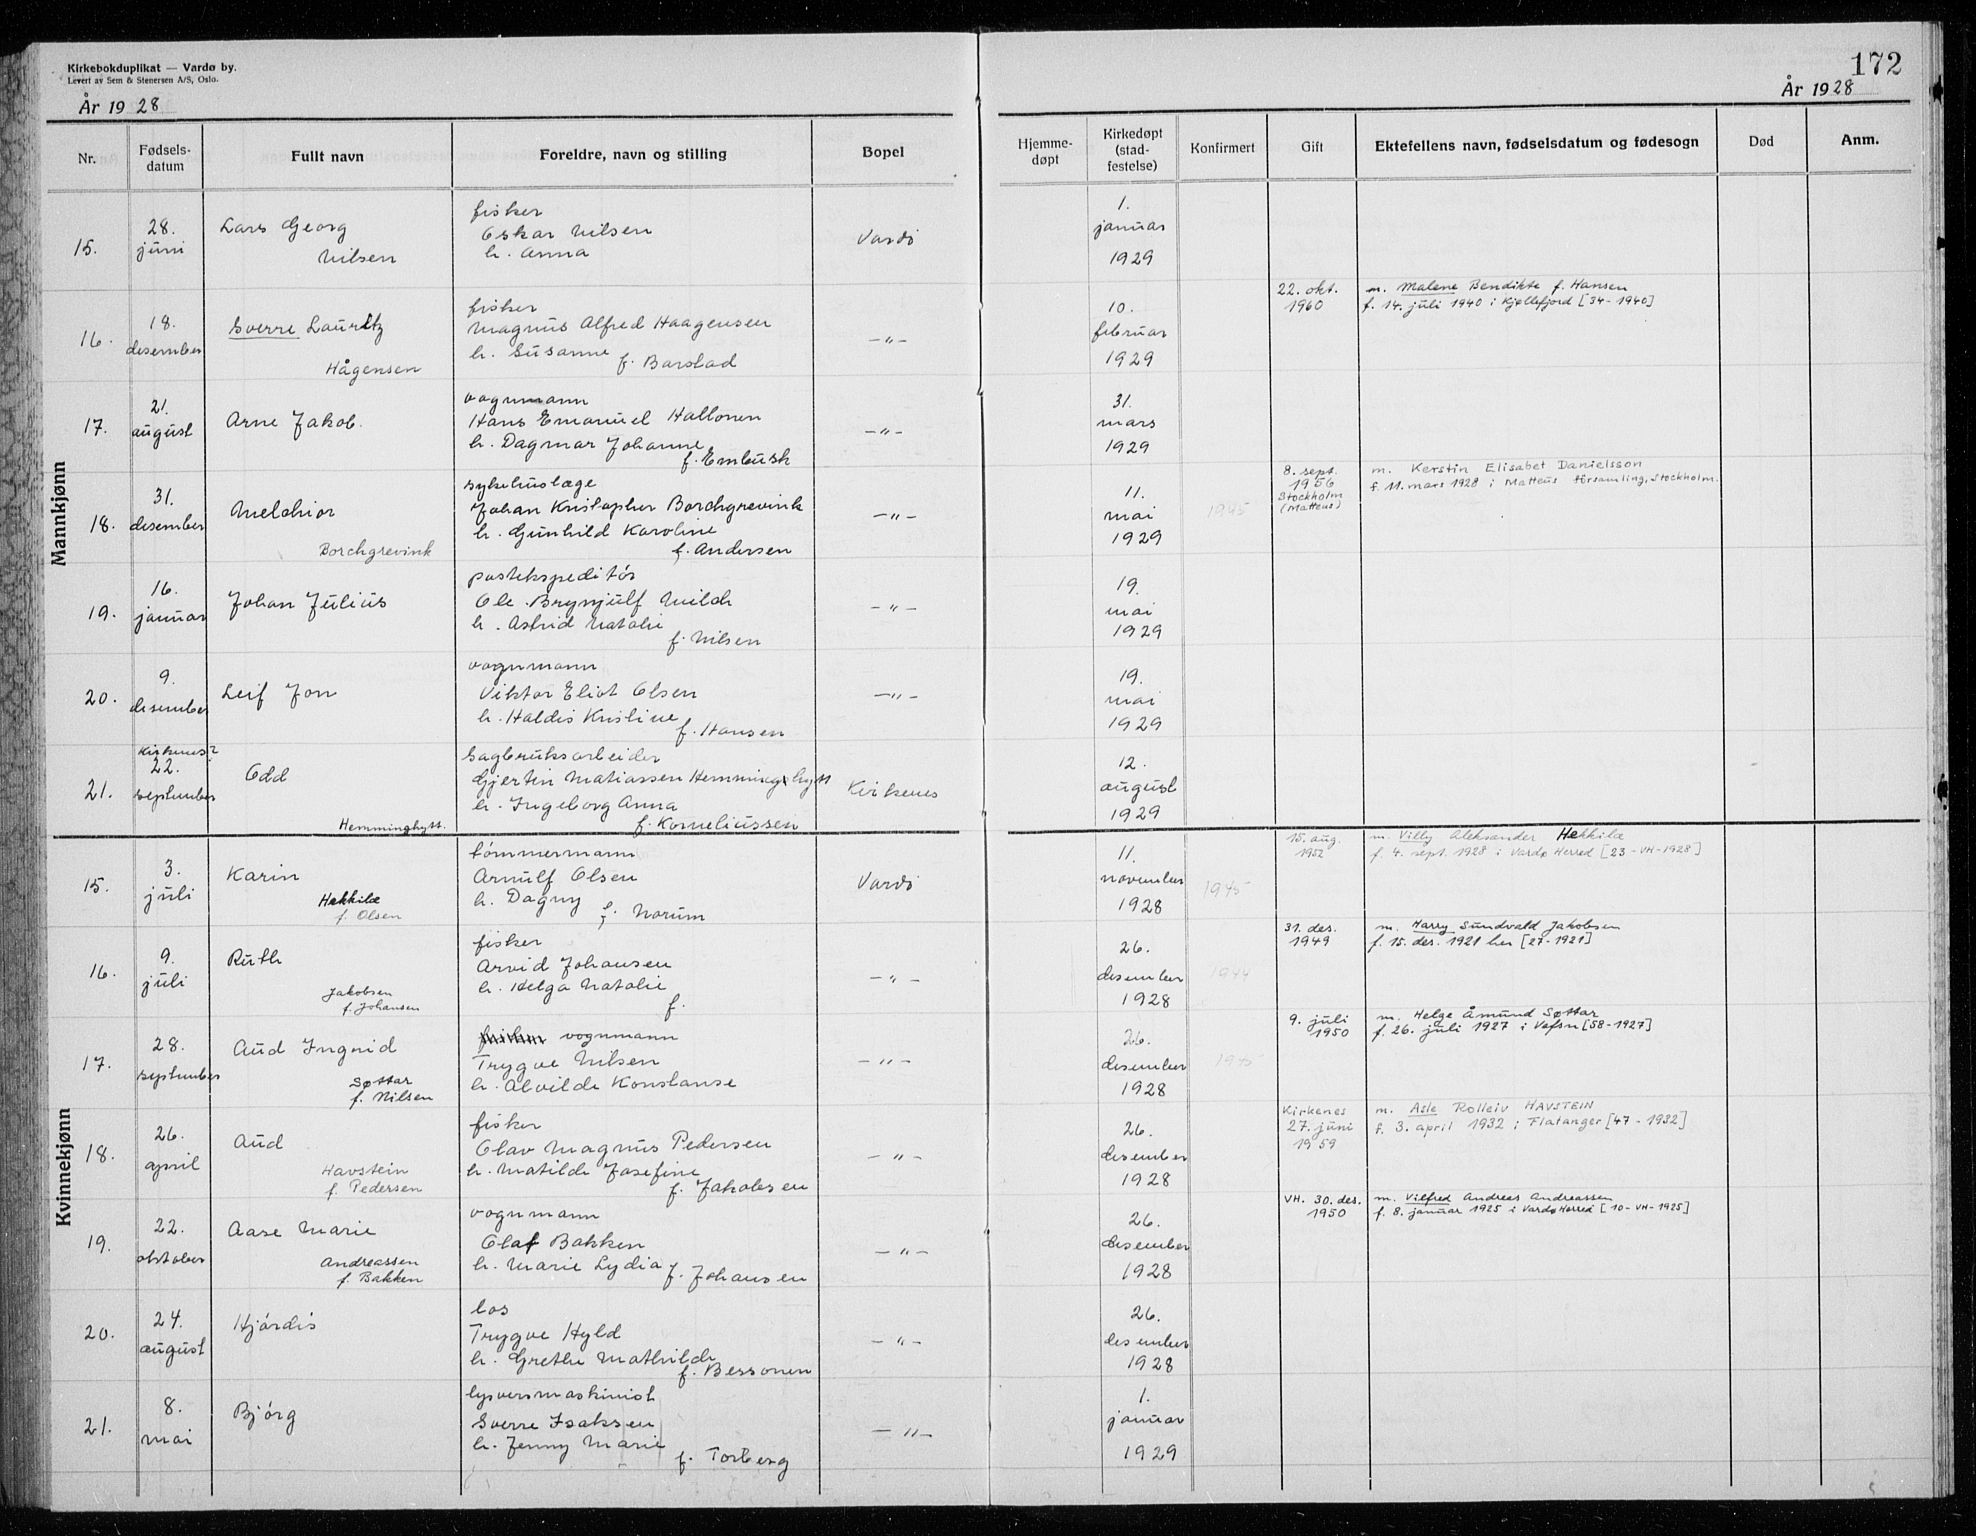 Kirkebokduplikat — Vardø by.
Levert av Sem & Stenersen A/S, Oslo.
År 1928
172
År 1928
Nr.
Fødsels-
datum
Fullt navn
Foreldre, navn og stilling
Bopel
Hjemme-
døpt
Kirkedøpt
(stad-
festelse)
Konfirmert
Gift
Ektefellens navn, fødselsdatum og fødesogn
Død
Anm.
Mannkjønn
15.
28.
juni
Lars Georg
Nilsen
fisker
Oskar Nilsen
h. Anna
Vardö
1.
januar
1929
16.
18.
desember
Sverre Lauritz
Hågensen
fisker
Magnus Alfred Haagensen
h. Susanne
f. Barstad
—"—
10.
februar
1929
22. okt.
1960
m. Malene Bendikte f. Hansen
f. 14. juli 1940 i Kjøllefjord [34-1940]
17.
21.
august
Arne Jakob.
vognmann
Hans Emanuel Hallonen
h. Dagmar Johanne
f. Embusk
—"—
31.
mars
1929
18.
31.
desember
Melchior
Borchgrevink
sykehuslæge
Johan Kristopher Borchgrevink
h. Gunhild Karoline
f. Andersen
—"—
11.
mai
1929
1945
8. sept.
1956
Stockholm
(Matteus)
m. Kerstin Elisabet Danielsson
f. 11. mars 1928 i Matteus församling, Stockholm.
19.
16.
januar
Johan Julius
postekspeditör
Ole Brynjulf Milde
h. Astrid Natalie
f. Nilsen
—"—
19.
mai
1929
20.
9.
desember
Leif Jon
vognmann
Viktor Eliot Olsen
h. Haldis Kristine
f. Hansen
—"—
19.
mai
1929
21.
Kirkenes?
22.
september
Odd
Hemminghytt.
Sagbruksarbeider
Gjertin Matiassen Hemminghytt
h. Ingeborg Anna
f. Korneliussen
Kirkenes
12.
august
1929
Kvinnekjønn
15.
3.
juli
Karin
Hekkilæ
f. Olsen
tömmermann
Arnulf Olsen
h. Dagny
f. Norum
Vardö
11.
november
1928
1945
15. aug.
1952
m. Villy Aleksander Hekkilæ
f. 4. sept. 1928 i Vardø Herred [23-VH-1928]
16.
9.
juli
Ruth
Jakobsen
f. Johansen
fisker
Arvid Johansen
h. Helga Natalie
f.
—"—
26.
desember
1928
1944
31. des.
1949
m. Harry Sundvald Jakobsen
f. 15. des. 1921 her [27-1921]
17.
28.
september
Aud Ingrid
Søttar
f. Nilsen
vognmann
Trygve Nilsen
h. Alvilde Konstanse
—"—
26.
desember
1928
1945
9. juli
1950
m. Helge Åmund Søttar
f. 26. juli 1927 i Vefsn [58-1927]
18.
26.
april
Aud
Havstein
f. Pedersen
fisker
Olav Magnus Pedersen
h. Matilde Josefine
f. Jakobsen
—"—
26.
desember
1928
Kirkenes
27. juni
1959
m. Asle Rolleiv HAVSTEIN
f. 3. april 1932 i Flatanger [47-1932]
19.
22.
oktober
Aase Marie
Andreassen
f. Bakken
vognmann
Olaf Bakken
h. Marie Lydia
f. Johansen
—"—
26.
desember
1928
VH. 30. des.
1950
m. Vilfred Andreas Andreassen
f. 8. januar 1925 i Vardø Herred [10-VH-1925]
20.
24.
august
Hjördis
los
Trygve Hyld
h. Grethe Mathilde
f. Bessonen
—"—
26.
desember
1928
21.
8.
mai
Björg
lysversmaskinist
Sverre Isaksen
h. Jenny Marie
f. Torberg
—"—
1.
januar
1929